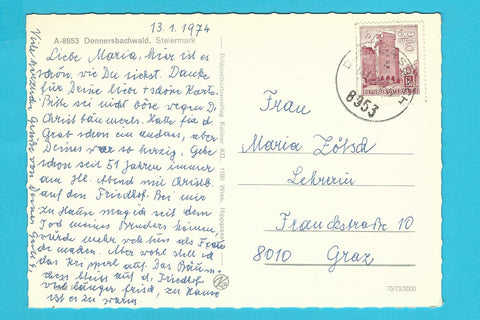 13.1.1974
A-8953 Donnersbachwald, Steiermark
Liebe Maria, hier ist es
schön, wie Du siehst. Danke
für Deine liebe schöne Karte.
Bitte sei nicht böse wegen D.
Christbäumerls. Hatte für d.
Grab schon ein andres, aber
Deines war so herzig. Gehe
schon seit 51 Jahren immer
am Hl. Abend mit Christb.
auf den Friedhof. Bei mir
zu Hause mag ich seit dem
Tod meines Bruders keinen,
würde mehr weh tun als Freude
machen. Aber wohl stell ich
das Kripperl auf. Das Bäum-
chen bleibt auf d. Friedhof
viel länger frisch, zu Hause
ist es zu warm.
Viele herzliche Grüße von Deiner
Frau
Maria Zötsch
Lehrerin
Frankstraße 10
8010 Graz
8953
REPUBLIK ÖSTERREICH
1180 Wien
70/73/3000